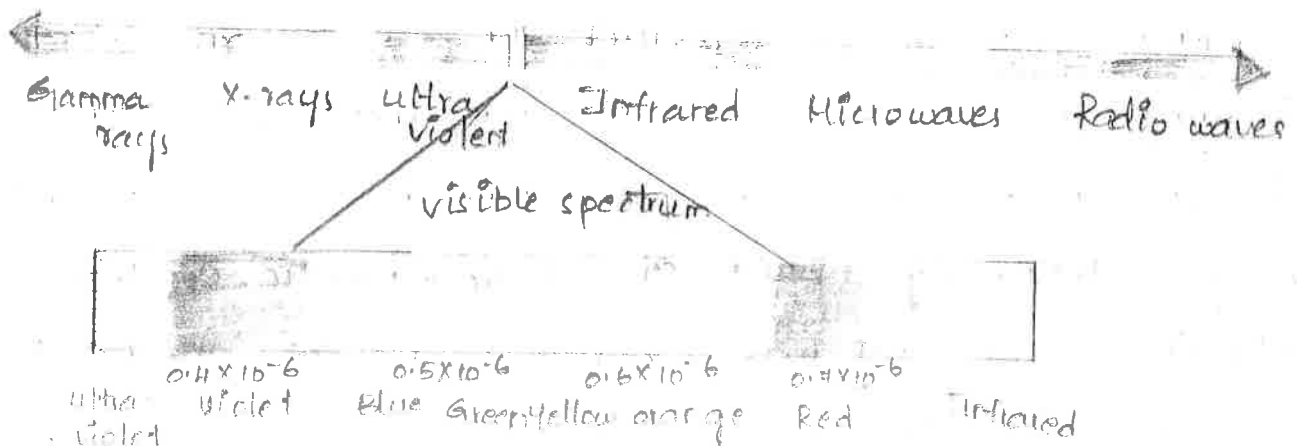 Gamma rays X-rays ultra violert Infrared Microwaves Radio waves
visible spectrum
0.4×10⁻⁶ 0.5×10⁻⁶ 0.6×10⁻⁶ 0.7×10⁻⁶
ultra violet Violet Blue Green Yellow orange Red Infrared